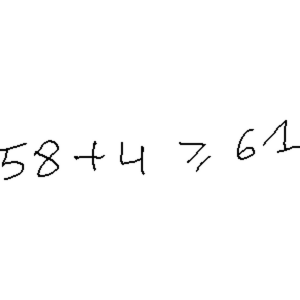 58+4 ⩾ 61